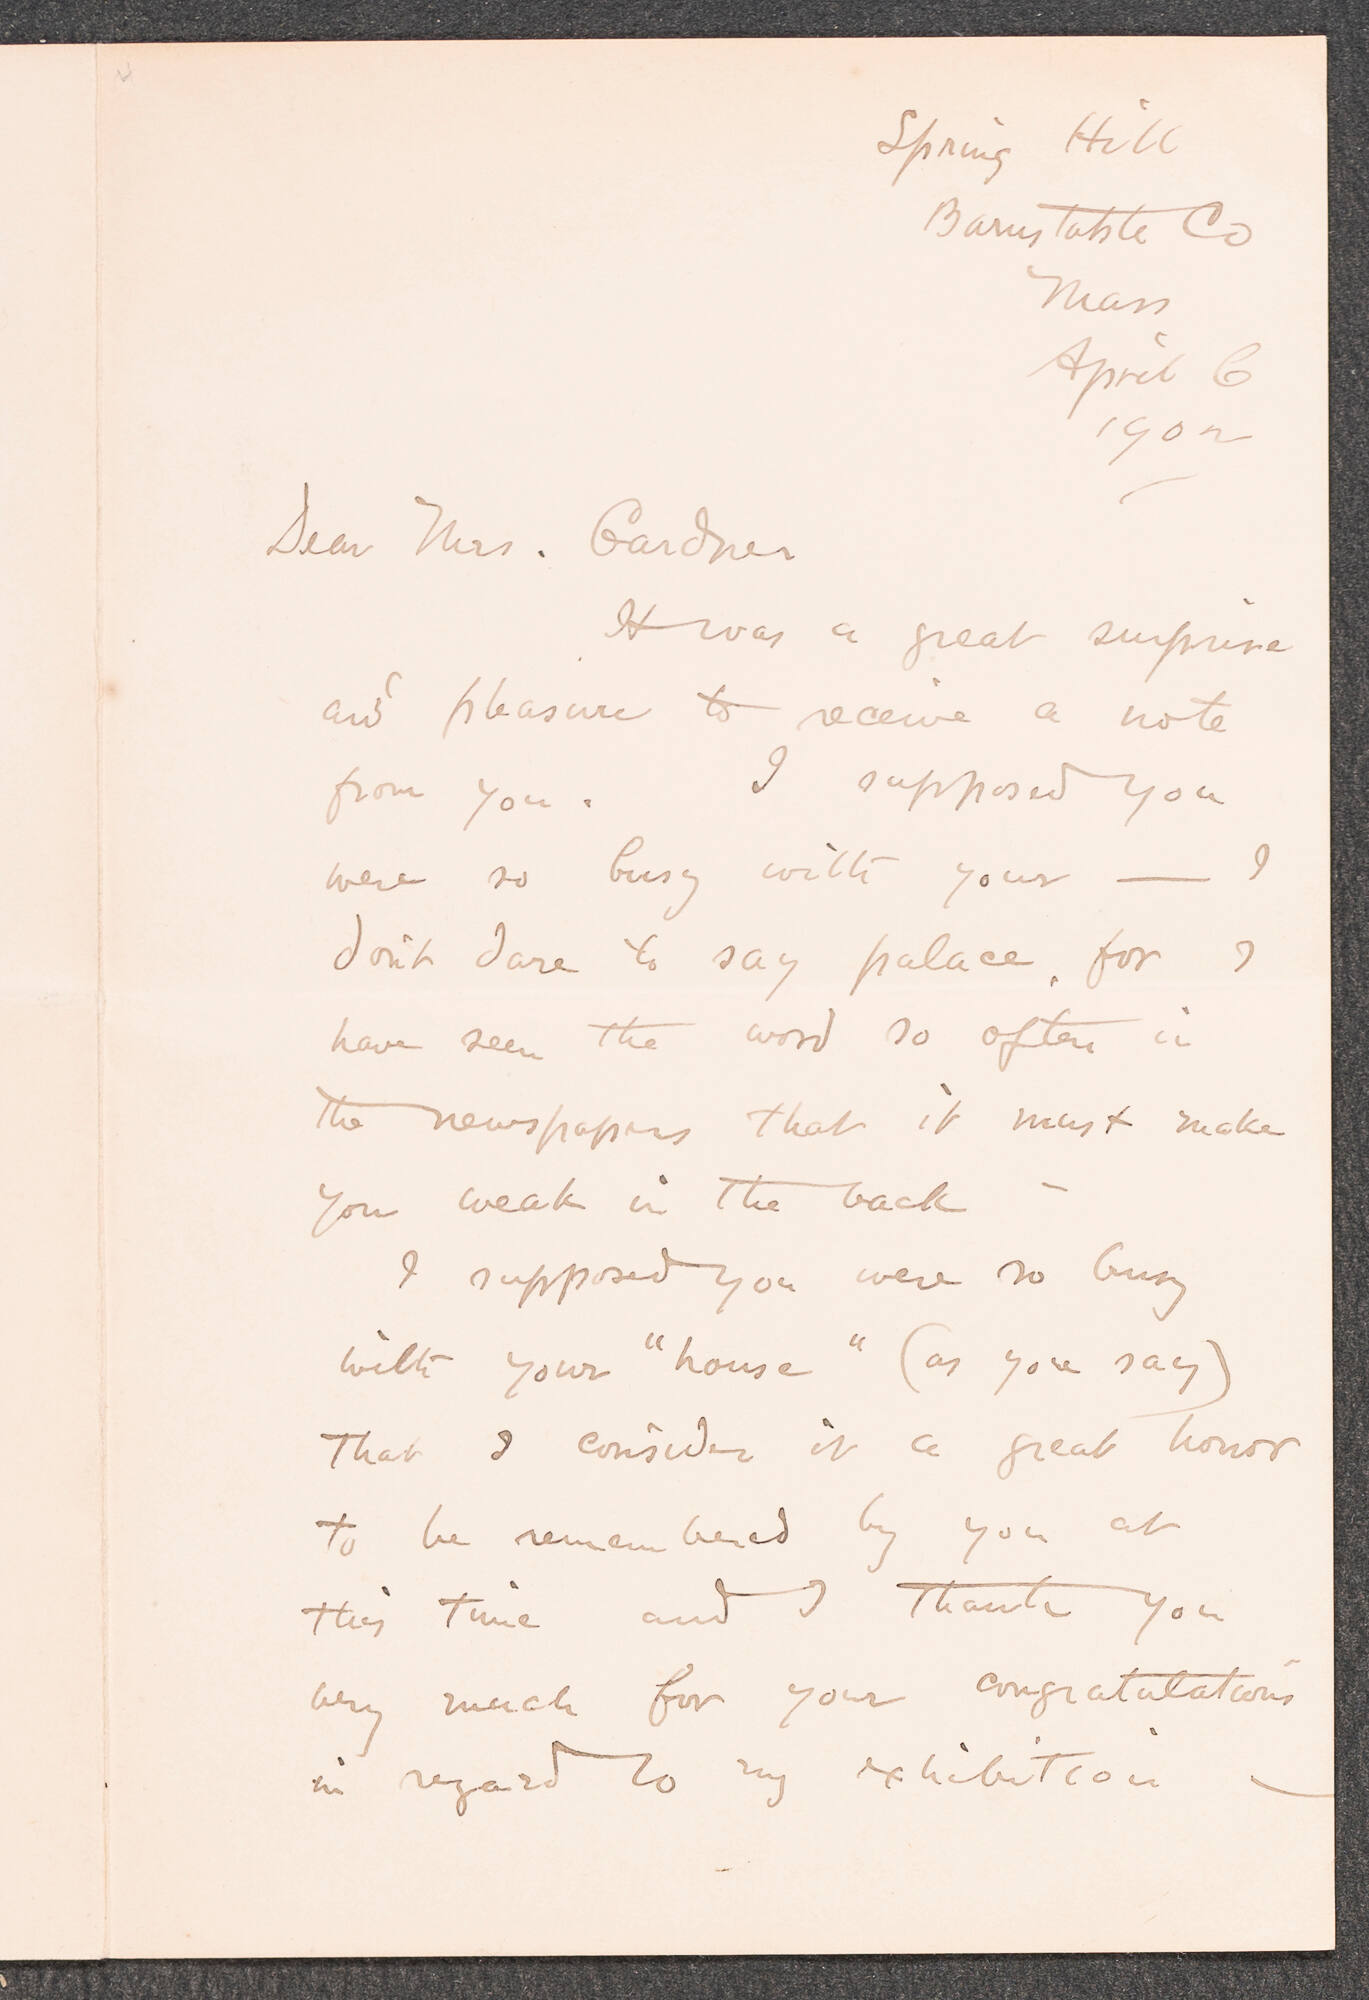 Spring Hill
Barnstable Co
Mass
April 6
1902
Dear Mrs. Gardner
It was a great surprise
and pleasure to receive a note
from you. I supposed you
were so busy with your — I
don't dare to say palace, for I
have seen the word so often in
the newspapers that it must make
you weak in the back –
I supposed you were so busy
with your "house" (as you say)
that I consider it a great honor
to be remembered by you at
this time and I thank you
very much for your congratulations
in regard to my exhibition —